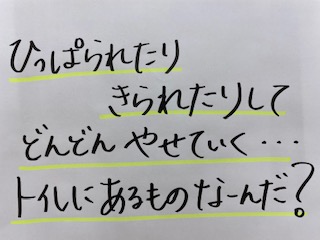 ひっぱられたり
きられたりして
どんどん やせていく・・・
トイレにあるものなーんだ?